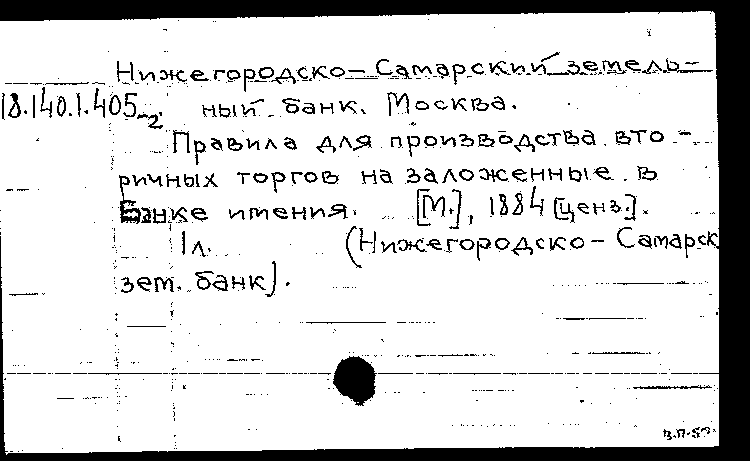 Нижегородско-Самарский земель-
18.140.1.405-2 ный банк. Москва.
Правила для производства вто-
ричных торгов на заложенные в
Банке имения. [М.], 1884 [ценз.].
1 л. (Нижегородско-Самарск
зем. банк).